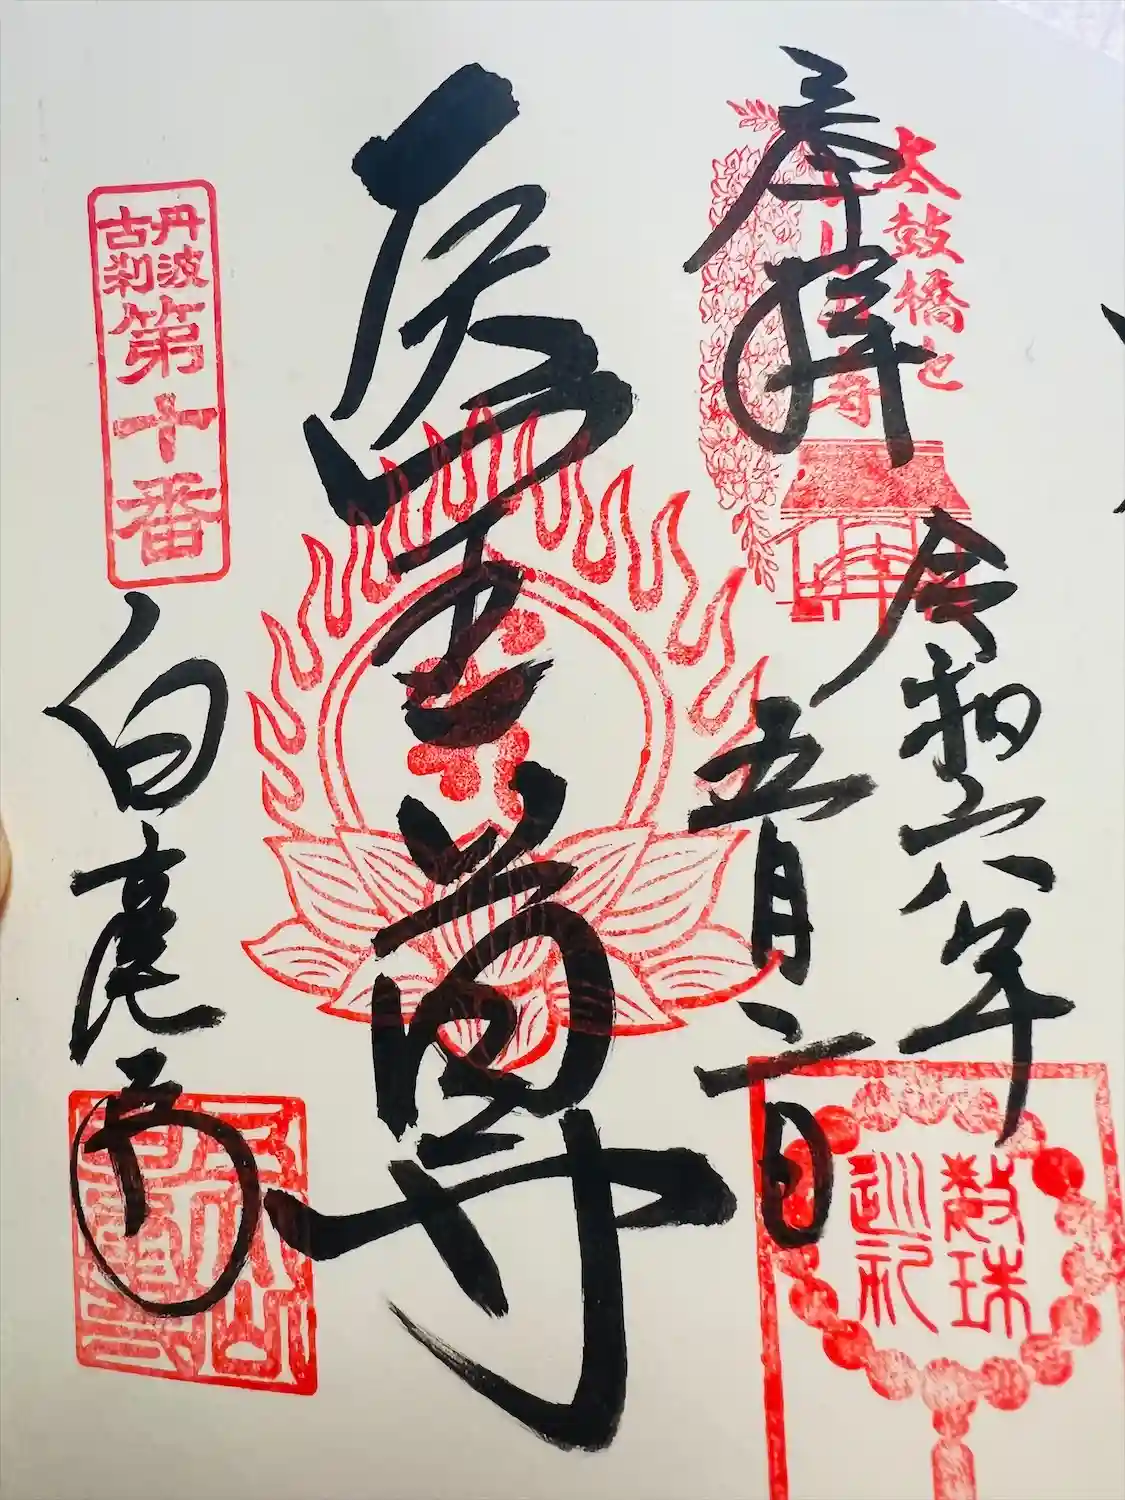 太鼓橋と
奉拝
令和六年
五月二日
数珠
巡礼
医王尊
丹波
古刹
第十番
白毫寺
五大山
白毫寺